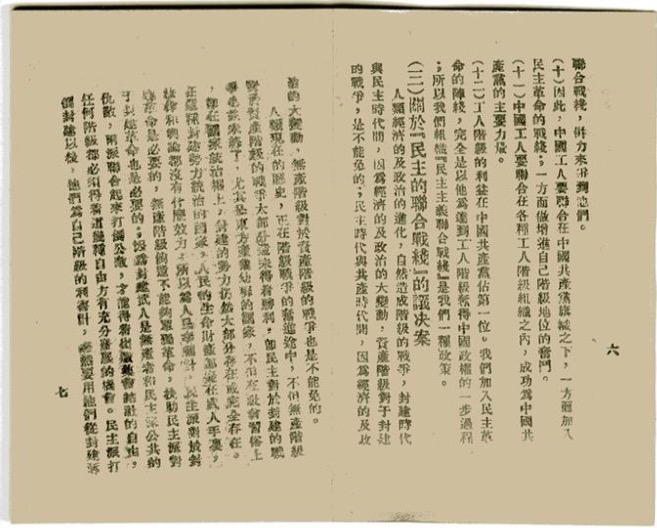 聯合戰綫，倂力來𢔶到他們。
(十)因此，中國工人要聯合在中國共產黨旗幟之下，一方面加入
民主革命的戰綫；一方面做增進自己階級地位的奮鬥。
(十一)中國工人要聯合在各種工人階級組織之內，成功爲中國共
產黨的主要力量。
(十二)工人階級的利益在中國共產黨佔第一位。我們加入民主革
命的陣綫，完全是以他爲達到工人階級奪得中國政權的一步過程
；所以我們組織『民主主義聯合戰綫』是我們一種政策。
(三)關於『民主的聯合戰綫』的議決案
人類經濟的及政治的進化，自然造成階級的戰爭，封建時代
與民主時代間，因爲經濟的及政治的大變動，資產階級對于封建
的戰爭，是不能免的；民主時代與共產時代間，因爲經濟的及政
六
治的大變動，無產階級對於資產階級的戰爭也是不能免的。
人類現在的歷史，正在階級戰爭的奮進途中，不但無產階級
對於資產階級的戰爭大部分還未得着勝利，卽民主對於封建的戰
爭也還未終了，尤其是東方產業幼稚的國家，不但在社會習俗上
，卽在國家統治權上，封建的勢力仍然大部分存在或完全存在。
在這種封建勢力統治的國家，人民的生命財產都在武人手裏，
法律和輿論都沒有什麼效力，所以爲人民幸福計，民主派對於封
建革命是必要的，無產階級倘還不能夠單獨革命，扶助民主派對
于封建革命也是必要的；因爲封建武人是無產者和民主派公共的
仇敵，兩派聯合起來打倒公敵，才能得着出版集會結社的自由，
任何階級都必須得着這幾種自由方有充分發展的機會。民主派打
倒封建以後，他們爲自己階級的利害計，必然要用他們從封建派
七